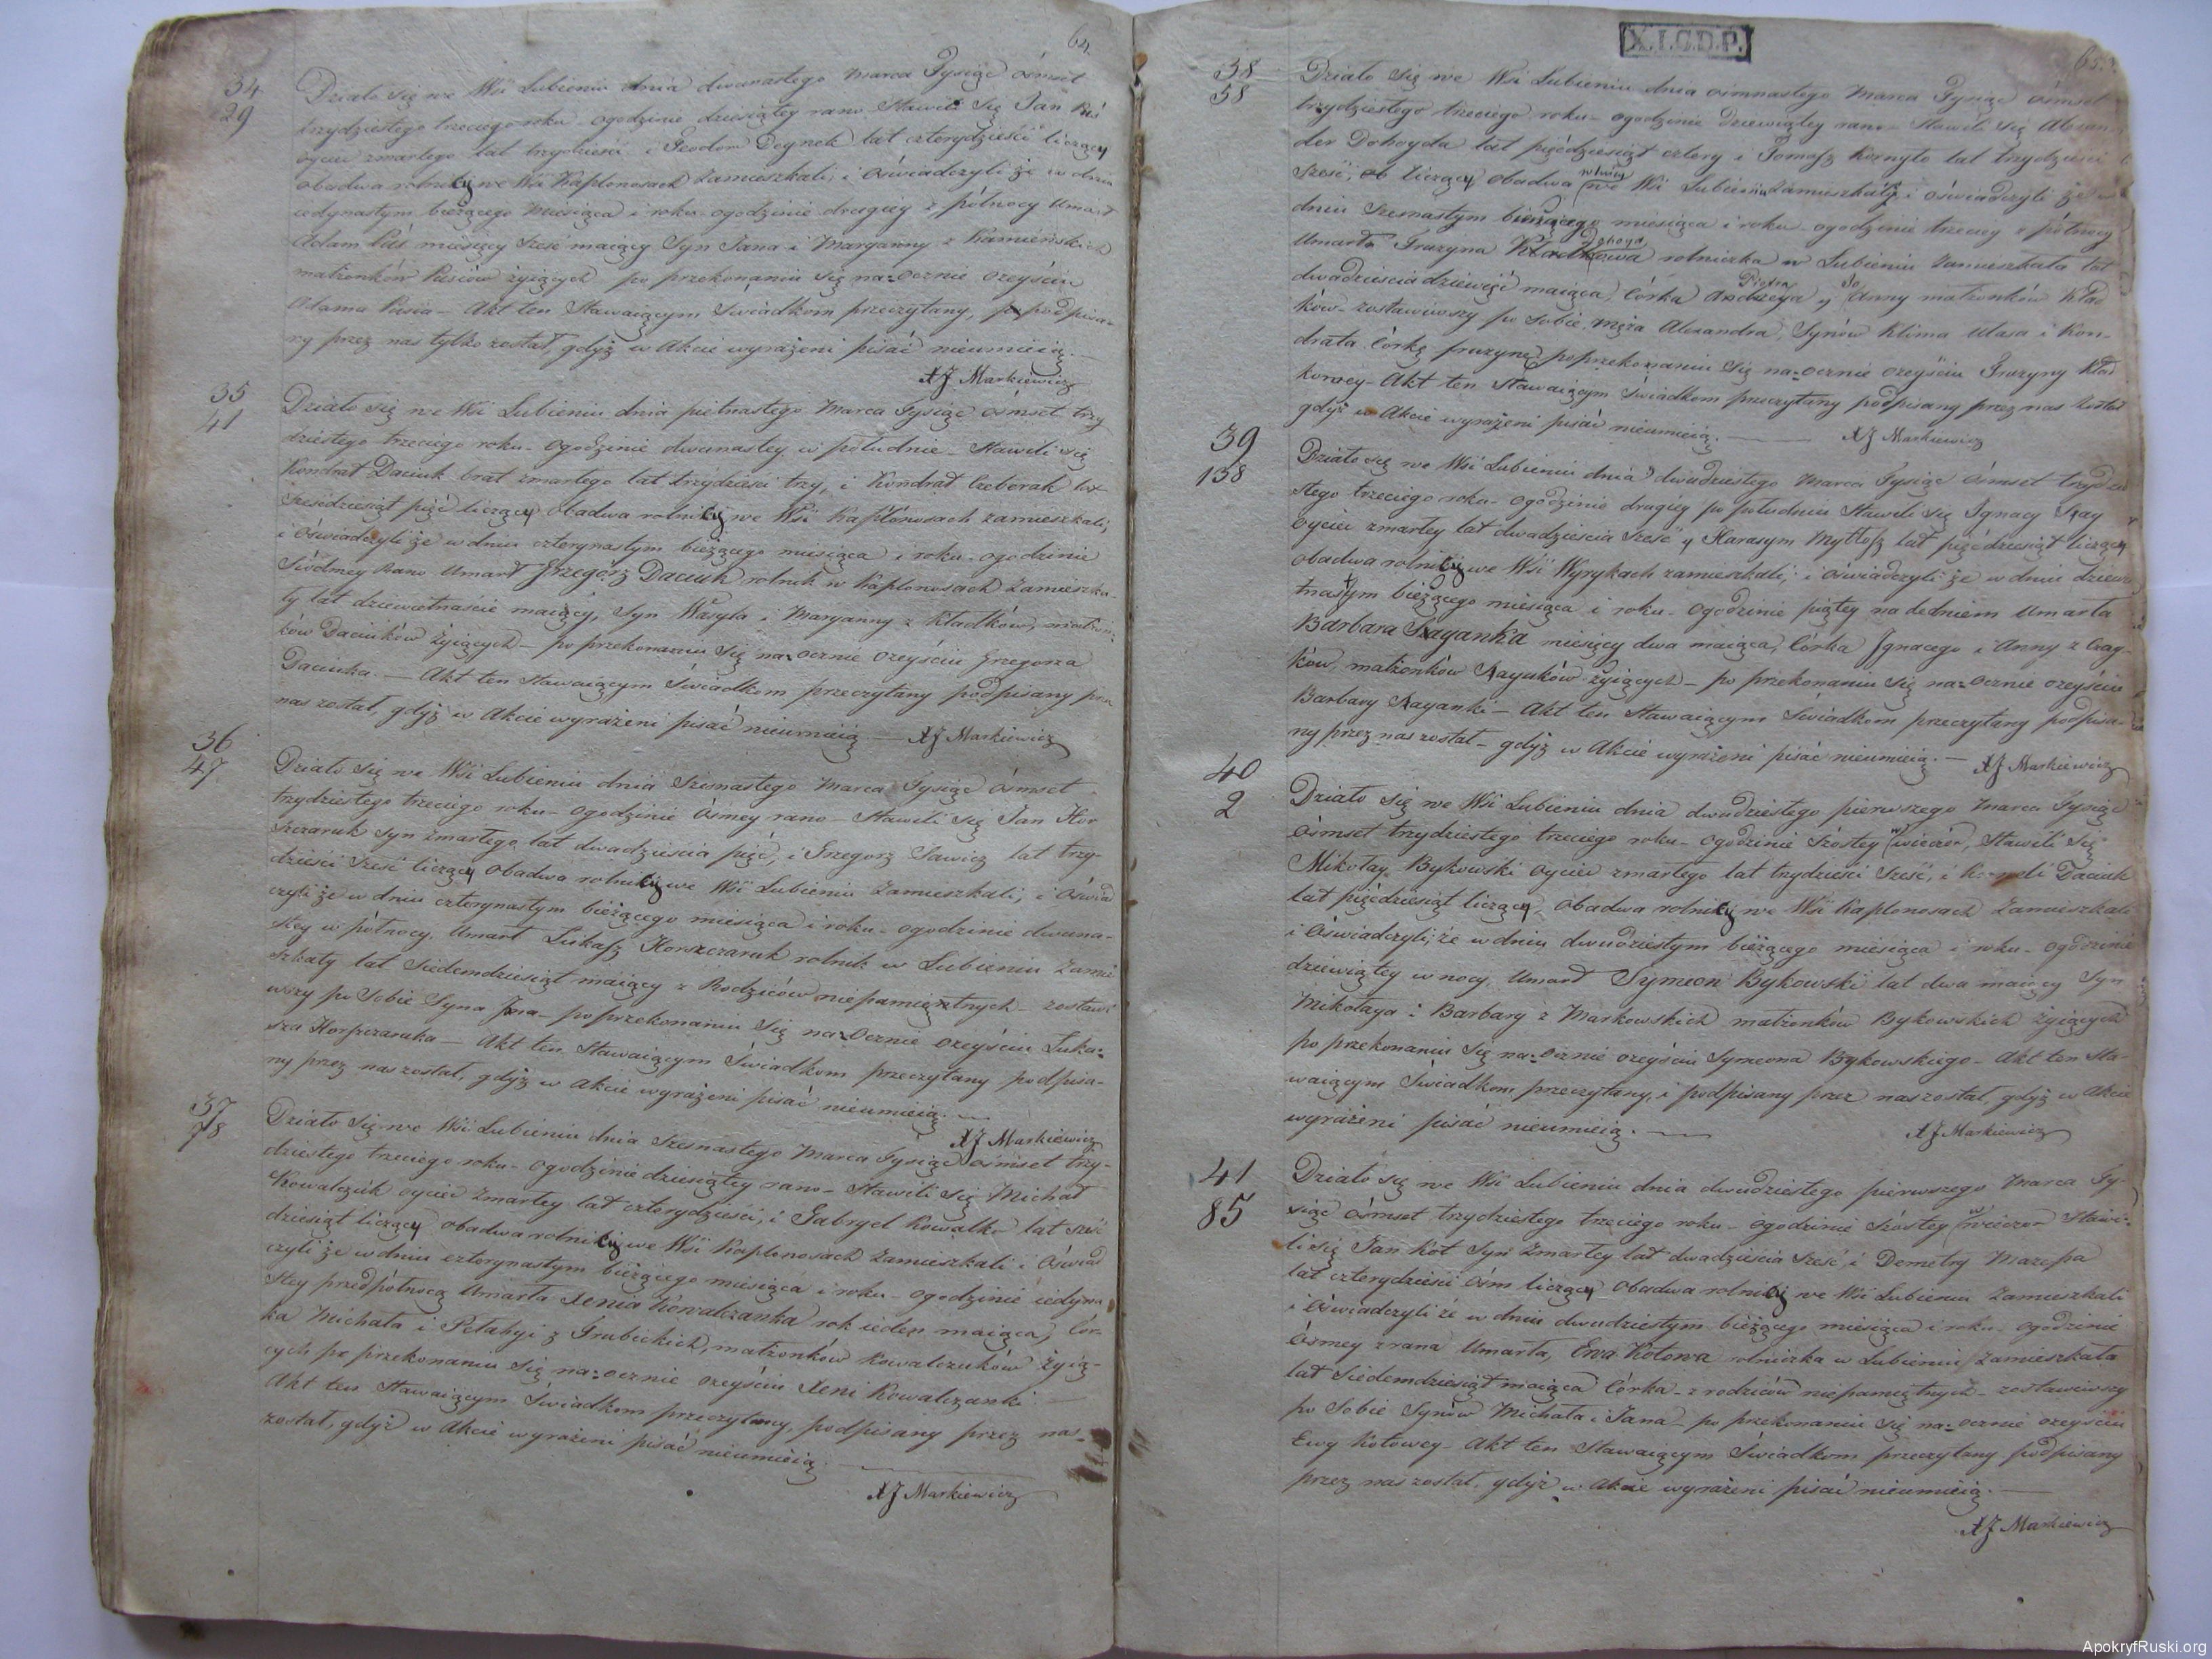 64.
34
29
Działo się we Wsi Lubieniu dnia dwunastego Marca Tysiąc ośmset
trzydziestego trzeciego roku ogodzinie dziesiątey rano Stawili Się Jan Puś
oyciec zmarłego lat trzydzieści i Teodor Deynek lat czterydzieści liczący
obadwa rolnicy we Wsi Kaplonosach Zamieszkali, i Oświadczyli że w dniu
iedynastym bieżącego Miesiąca i roku ogodzinie drugiey z północy Umarł
Adam Puś miesięcy sześć maiący Syn Jana i Maryanny z Kamieńskich
małżonków Pusiów żyiących po przekonaniu się na=ocznie oześciu
Adama Pusia — Akt ten Stawaiącym Swiadkom przeczytany, podpisa-
ny przez nas tylko został, gdyż w Akcie wyrażeni pisać nieumieią.
XJ Markiewicz
35
41
Działo się we Wsi Lubieniu dnia piętnastego Marca Tysiąc ośmset trzy
dziestego trzeciego roku ogodzinie dwunastey w południe Stawili się
Kondrat Daciuk brat zmarłego lat trzydzieści trzy, i Kondrat Czeberak lat
sześćdziesiąt pięć liczący obadwa rolnicy we Wsi Kaplonosach zamieszkali,
i Oświadczyli że w dniu czternastym bieżącego miesiąca i roku ogodzinie
Siódmey Rano Umarł Grzegorz Daciuk rolnik w Kaplonosach Zamieszka-
ły lat dziewiętnaście maiący, Syn Wasyla i Maryanny z Kładków, małżon-
ków Daciuków żyiących — po przekonaniu się na=ocznie ozeyściu Grzegorza
Daciuka. — Akt ten Stawaiącym Świadkom przeczytany podpisany przez
nas został, gdyż w Akcie wyrażeni pisać nieumieią — XJ Markiewicz
36
47
Działo się we Wsi Lubieniu dnia Szesnastego Marca Tysiąc ośmset
trzydziestego trzeciego roku ogodzinie Ósmey rano — Stawili Się Jan Hor
szczaruk syn zmarłego lat dwadzieścia pięć, i Grzegorz Sawicz lat trzy-
dzieści sześć liczący Obadwa rolnicy we Wsi Lubieniu Zamieszkali, i Oświad
czyli że w dniu czternastym bieżącego miesiąca i roku ogodzinie dwuna-
stey w północy. Umarł Łukasz Horszczaruk rolnik w Lubieniu Zamie
szkały lat siedemdziesiąt maiący z Rodziców niepamiętnych zostawi
wszy po Sobie Syna Jana po przekonaniu się na=Ocznie ozeyściu Łuka=
sza Horszczaruka — Akt ten Stawaiącym Świadkom przeczytany podpisa-
ny przez nas został, gdyż w Akcie wyrażeni pisać nieumieią.
XJ Markiewicz
37
78
Działo się we Wsi Lubieniu dnia Szesnastego Marca Tysiąc ośmset trzy-
dziestego trzeciego roku ogodzinie dziesiątey rano Stawili się Michał
Kowalczuk oyciec Zmarłey lat czterydzieści, i Gabryel Kowalko lat sześć
dziesiąt liczący obadwa rolnicy we Wsi Kaplonosach Zamieszkali i Oświad
czyli że w dniu czternastym bieżącego miesiąca i roku ogodzinie iedyna
stey przed północą Umarła Xenia Kowalczanka rok ieden maiąca, Cór-
ka Michała i Petahyi z Grubickich, małżonków Kowalczuków żyią-
cych po przekonaniu się na=ocznie ozeyściu Xeni Kowalczanki —
Akt ten Stawaiącym Świadkom przeczytany, podpisany przez nas
został, gdyż w Akcie wyrażeni pisać nieumieią.
XJ Markiewicz
X.I.C.D.P.
38
58
Działo się we Wsi Lubieniu dnia ośmnastego Marca Tysiąc ośmset
trzydziestego trzeciego roku ogodzinie dziewiątey rano — Stawili się Alexan
der Dohoyda lat pięćdziesiąt cztery i Tomasz Kornyło lat trzydzieści
sześć, liczący obadwa rolnicy we Wsi Lubieniu Zamieszkali i oświadczyli że w
dniu szesnastym bieżącego miesiąca i roku ogodzinie trzeciey z północy
Umarła Fruzyna rolniczka w Lubieniu zamieszkała lat
dwadzieścia dziewięć maiąca, Córka Piotra y Anny małżonków Kład
ków zostawiwszy po Sobie męża Alexandra, Synów Klima Ułasa i Kon-
drata Córkę fruzynę po przekonaniu się na=ocznie ozeyściu Fruzyny Kład
kowey. Akt ten Stawaiącym Świadkom przeczytany podpisany przez nas został
gdyż w Akcie wyrażeni pisać nieumieią. — XJ Markiewicz
39
138
Działo się we Wsi Lubieniu dnia dwudziestego Marca Tysiąc ośmset trzydzie
stego trzeciego roku ogodzinie drugiey po południu Stawili się Ignacy
Oyciec zmarłey lat dwadzieścia sześć y Harasym Mytłosz lat pięćdziesiąt liczący
obadwa rolnicy we Wsi Wyrykach zamieszkali, i oświadczyli że w dniu dziewię
tnastym bieżącego miesiąca i roku ogodzinie piątey nadedniem Umarła
Barbara miesięcy dwa maiąca, Córka Ignacego i Anny z
ków małżonków żyiących — po przekonaniu się na=ocznie ozeyściu
Barbary — Akt ten Stawaiącym Świadkom przeczytany podpisa-
ny przez nas został gdyż w Akcie wyrażeni pisać nieumieią. — XJ Markiewicz
40
2
Działo się we Wsi Lubieniu dnia dwudziestego pierwszego Marca Tysiąc
ośmset trzydziestego trzeciego roku ogodzinie szóstey w wieczór, Stawili się
Mikołay Bykowski oyciec zmarłego lat trzydzieści sześć, i Daciuk
lat pięćdziesiąt liczący, obadwa rolnicy we Wsi Kaplonosach zamieszkali
i Oświadczyli, że w dniu dwudziestym bieżącego miesiąca i roku ogodzinie
dziewiątey w nocy, Umarł Symeon Bykowski lat dwa maiący Syn
Mikołaya i Barbary z Markowskich małżonków Bykowskich żyiących
po przekonaniu się na=ocznie ozeyściu Symeona Bykowskiego — Akt ten Sta-
waiącym Świadkom, przeczytany, i podpisany przez nas został, gdyż w Akcie
wyrażeni pisać nieumieią.
XJ Markiewicz
41
85
Działo się we Wsi Lubieniu dnia dwudziestego pierwszego Marca Ty-
siąc ośmset trzydziestego trzeciego roku ogodzinie Szóstey w wieczór Stawi-
li się Jan Kot Syn Zmarłey lat dwadzieścia sześć, i Demetry Mazepa
lat czterydzieści ośm liczący Obadwa rolnicy we Wsi Lubieniu Zamieszkali
i Oświadczyli że w dniu dwudziestym bieżącego miesiąca i roku ogodzinie
ósmey zrana Umarła, Ewa Kotowa rolniczka w Lubieniu Zamieszkała
lat siedemdziesiąt maiąca Córka z rodziców niepamiętnych zostawiwszy
po Sobie Synów Michała i Jana po przekonaniu się na=ocznie ozeyściu
Ewy Kotowey Akt ten Stawaiącym Świadkom przeczytany podpisany
przez nas został, gdyż w Akcie wyrażeni pisać nieumieią.
XJ Markiewicz
ApokryfRuski.org